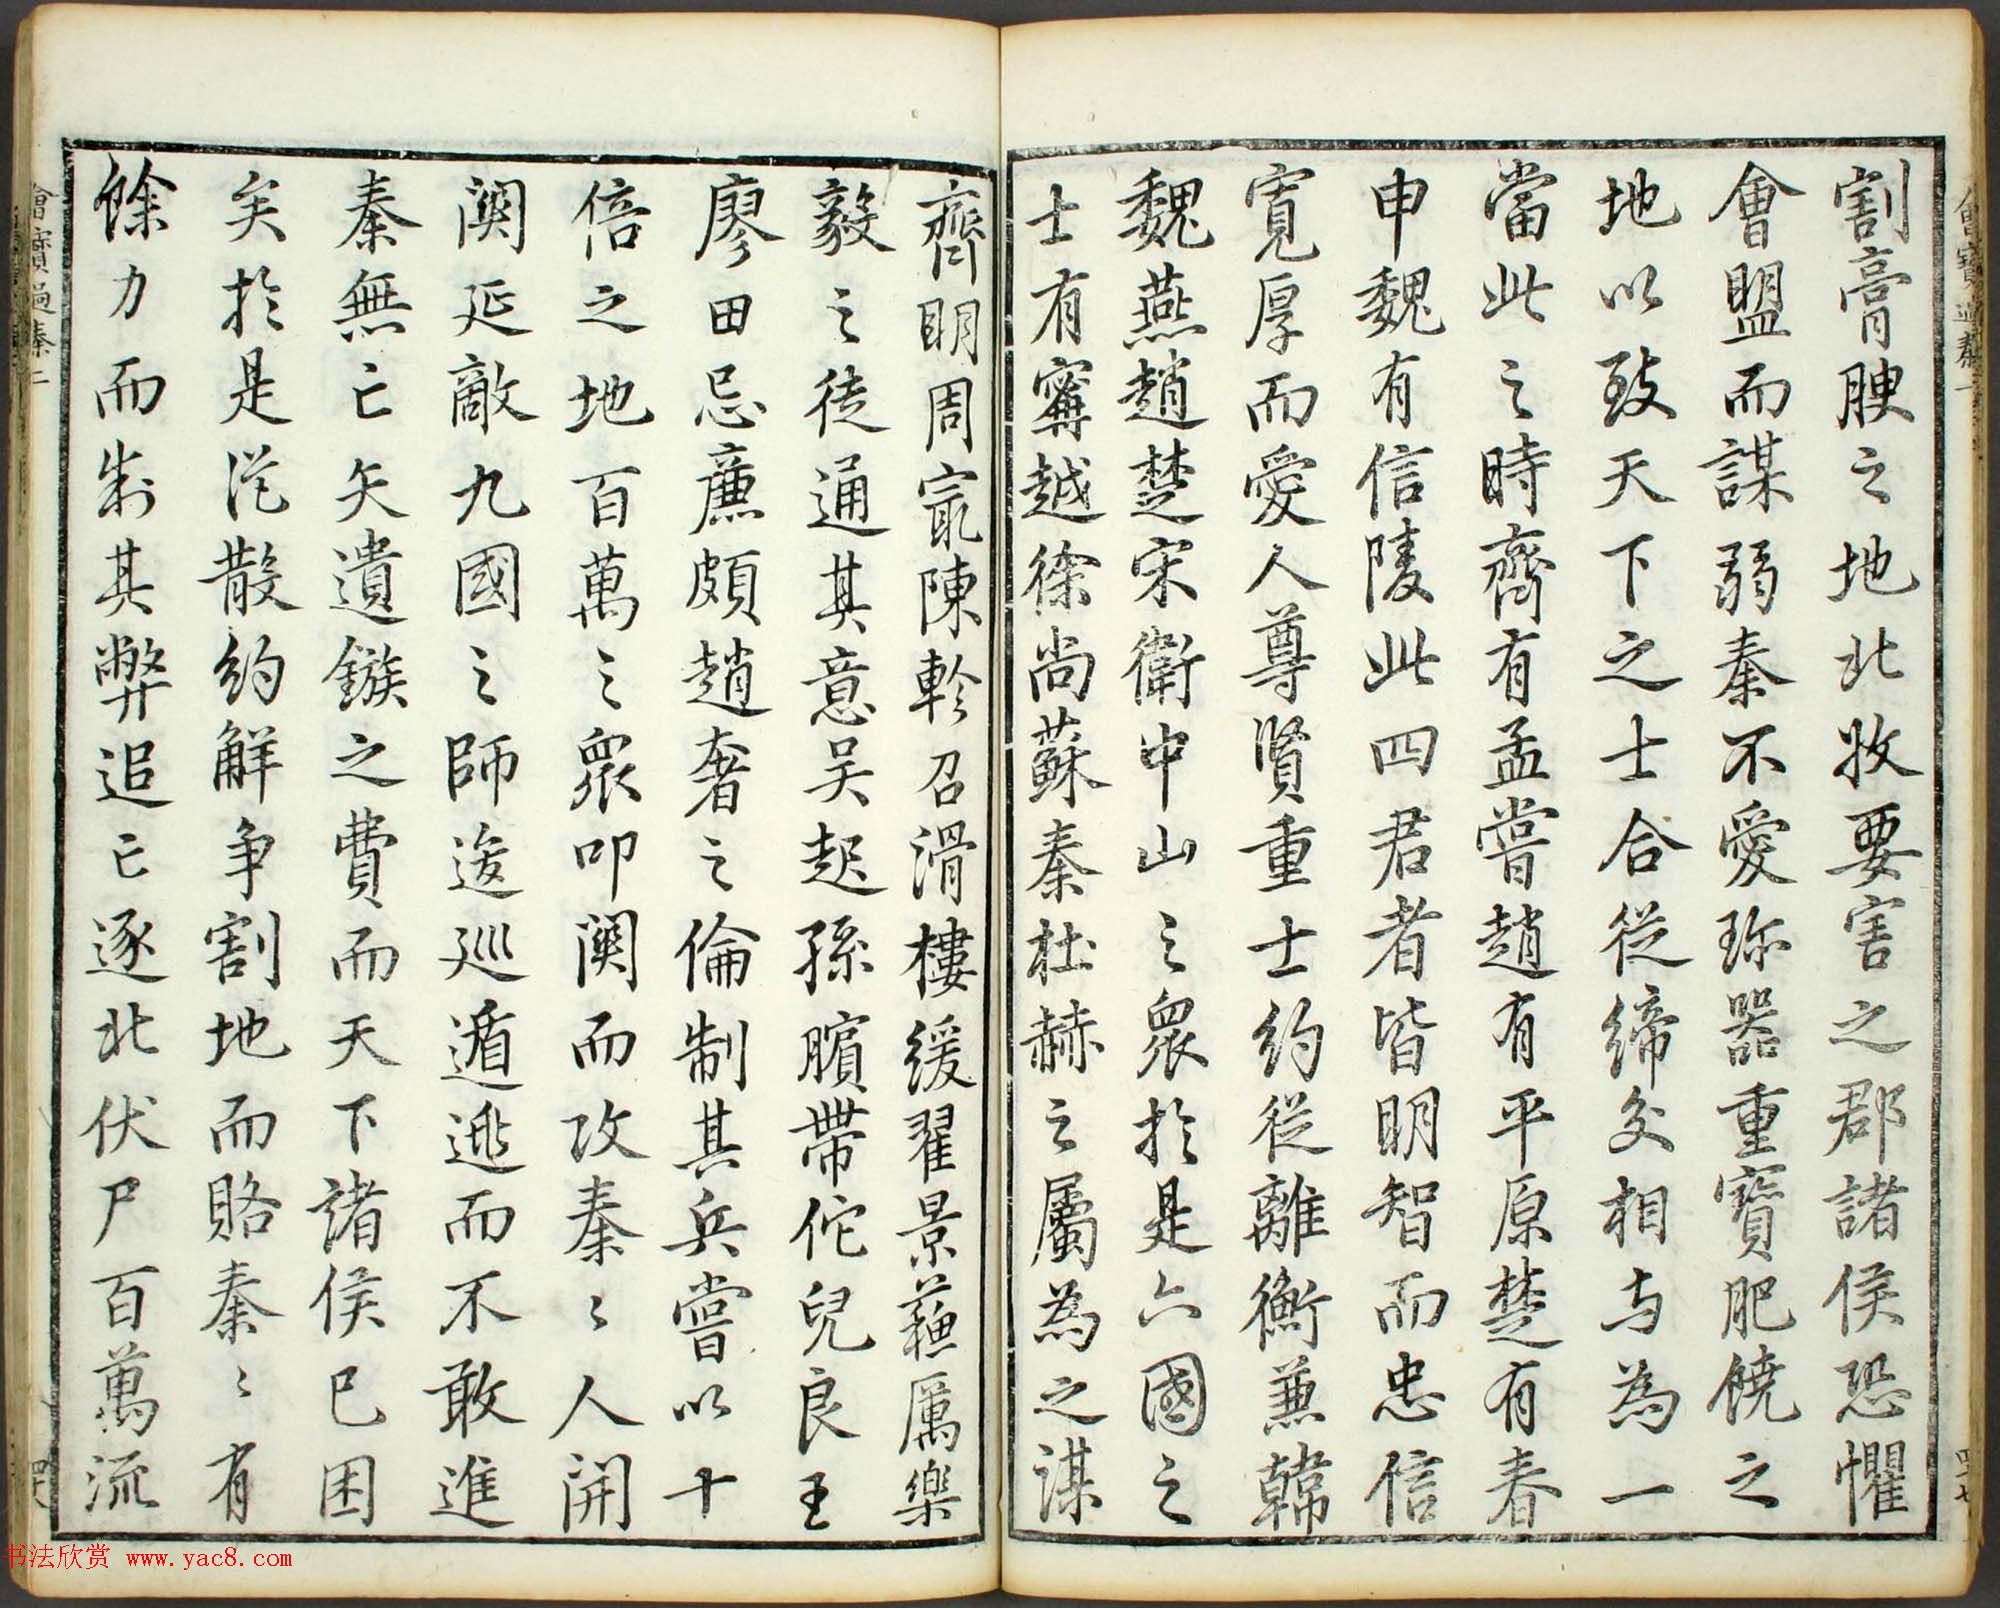 割膏腴之地北收要害之郡諸侯恐懼
會盟而謀弱秦不愛珎器重寶肥饒之
地以致天下之士合從締交相与為一
當此之時齊有孟嘗趙有平原楚有春
申魏有信陵此四君者皆明智而忠信
寬厚而愛人尊賢重士約從離衡兼韓
魏燕趙楚宋衛中山之衆於是六國之
士有寗越徐尚蘇秦杜赫之屬為之謀
齊明周冣陳軫召滑樓緩翟景蘓厲樂
毅之徒通其意吴起孫臏帶佗兒良王
廖田忌廉頗趙奢之倫制其兵嘗以十
倍之地百萬之衆叩関而攻秦〻人開
関延敵九國之師逡巡遁逃而不敢進
秦無亡矢遺鏃之費而天下諸侯已困
矣於是從散約解争割地而賂秦〻有
餘力而制其弊追亡逐北伏尸百萬流
四十七
四十八
书法欣赏 www.yac8.com